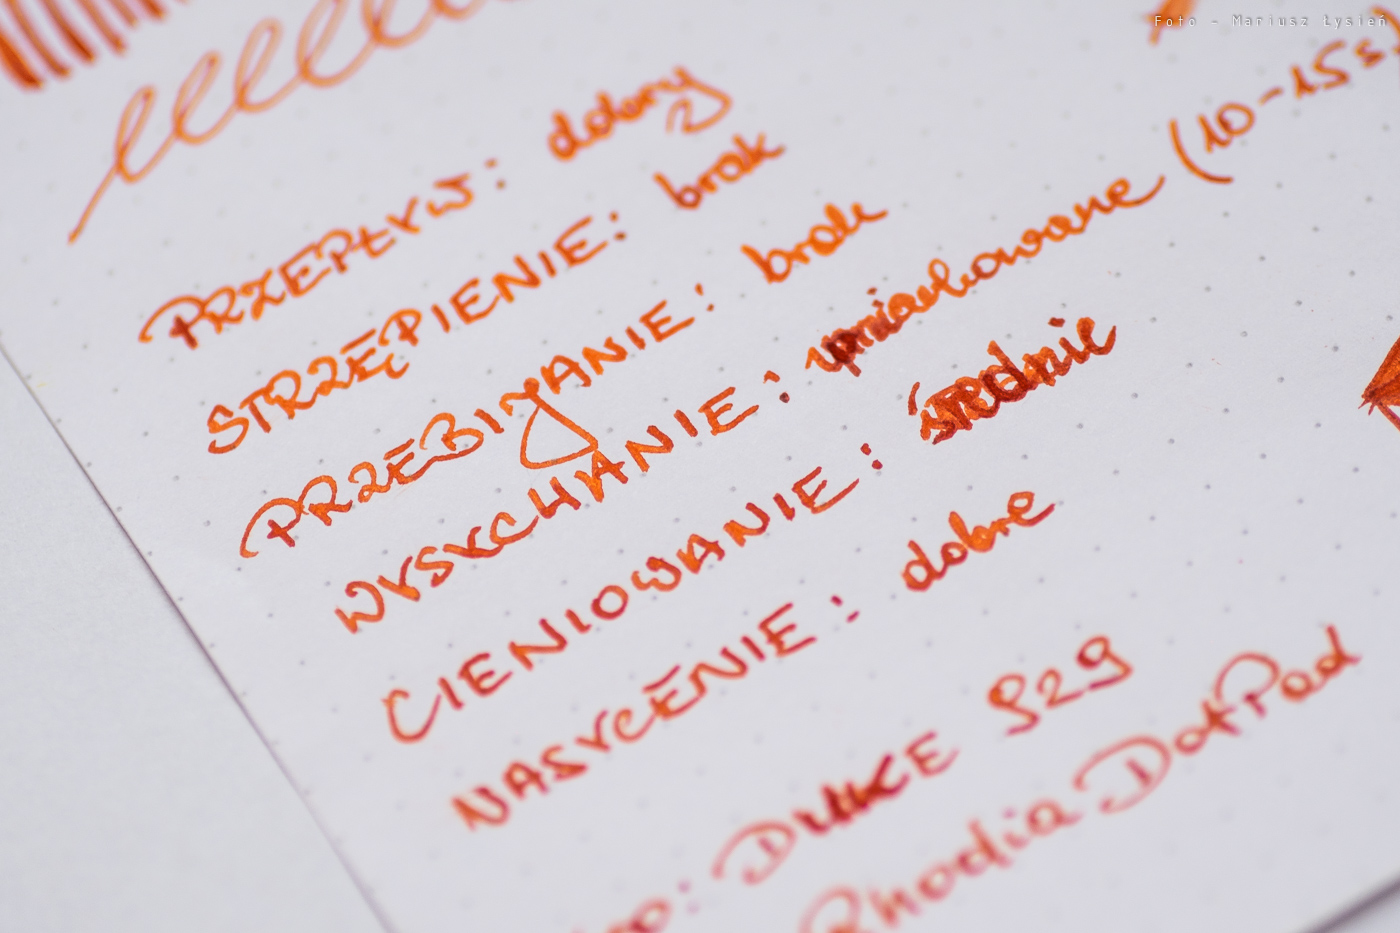 Foto - Mariusz Łysień
PRZEPŁYW: dobry
STRZĘPIENIE: brak
PRZEBIJANIE: brak
WYSYCHANIE: umiarkowane (10-15s)
CIENIOWANIE: średnie
NASYCENIE: dobre
DUKE 929
Rhodia DotPad